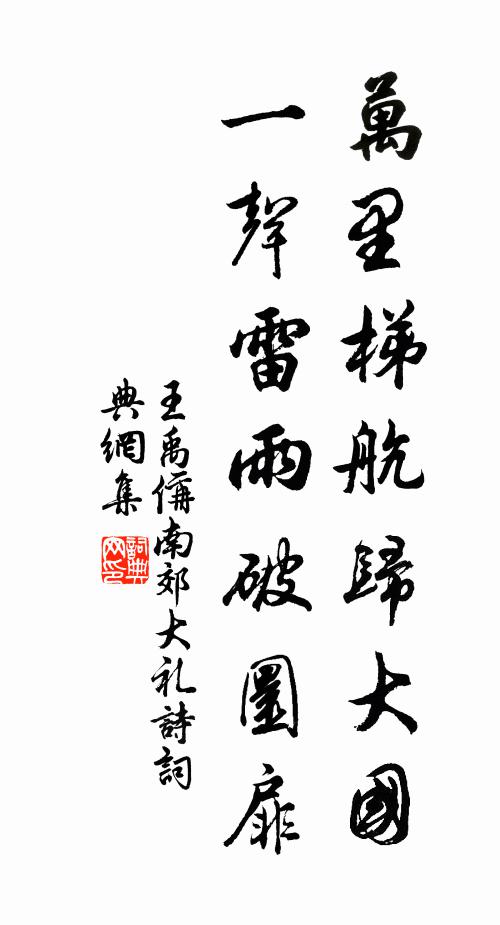 萬里梯航歸大國
一聲雷雨破圜扉
王禹偁南郊大礼詩詞
典網集
詞典
网印